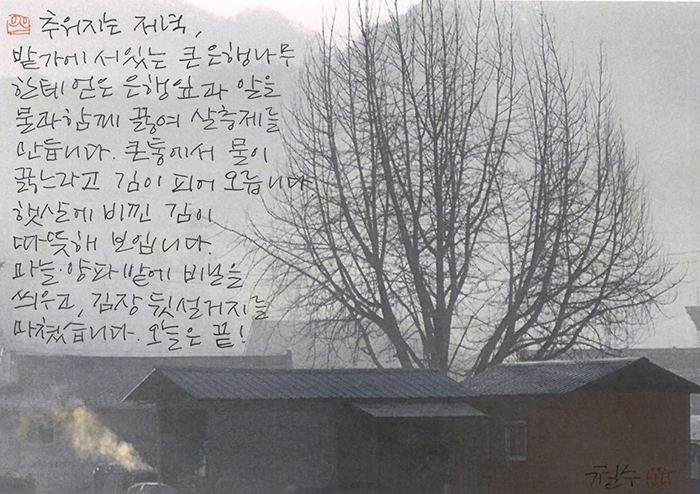 추워지는 저녁,
밭가에 서있는 큰 은행나무
한테 얻은 은행잎과 알을
물과 함께 끓여 살충제를
만듭니다. 큰통에서 물이
끓느라고 김이 피어 오릅니다
햇살에 비낀 김이
따뜻해 보입니다.
마늘·양파밭에 비닐을
씌우고, 김장 뒷설거지를
마쳤습니다. 오늘은 끝!
철수